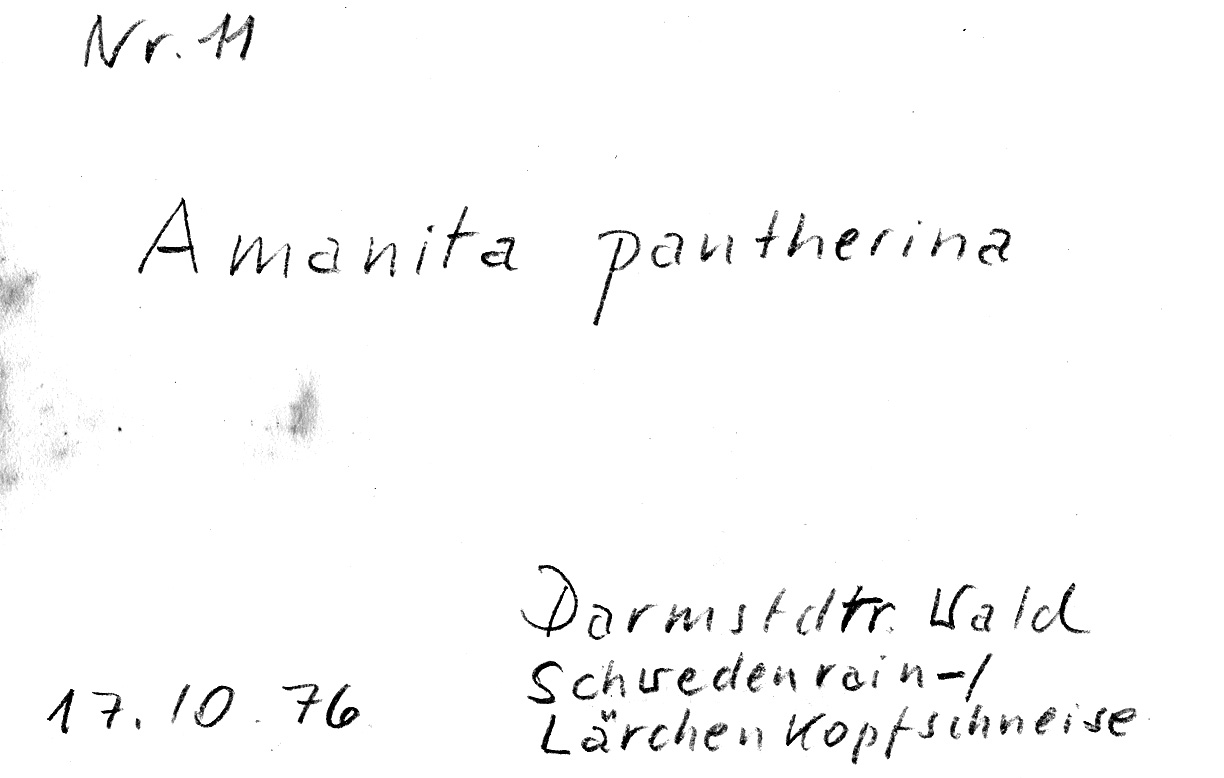 Nr. 11
Amanita pantherina
Darmstdtr. Wald
Schwedenrain-/
17.10.76 Lärchenkopfschneise